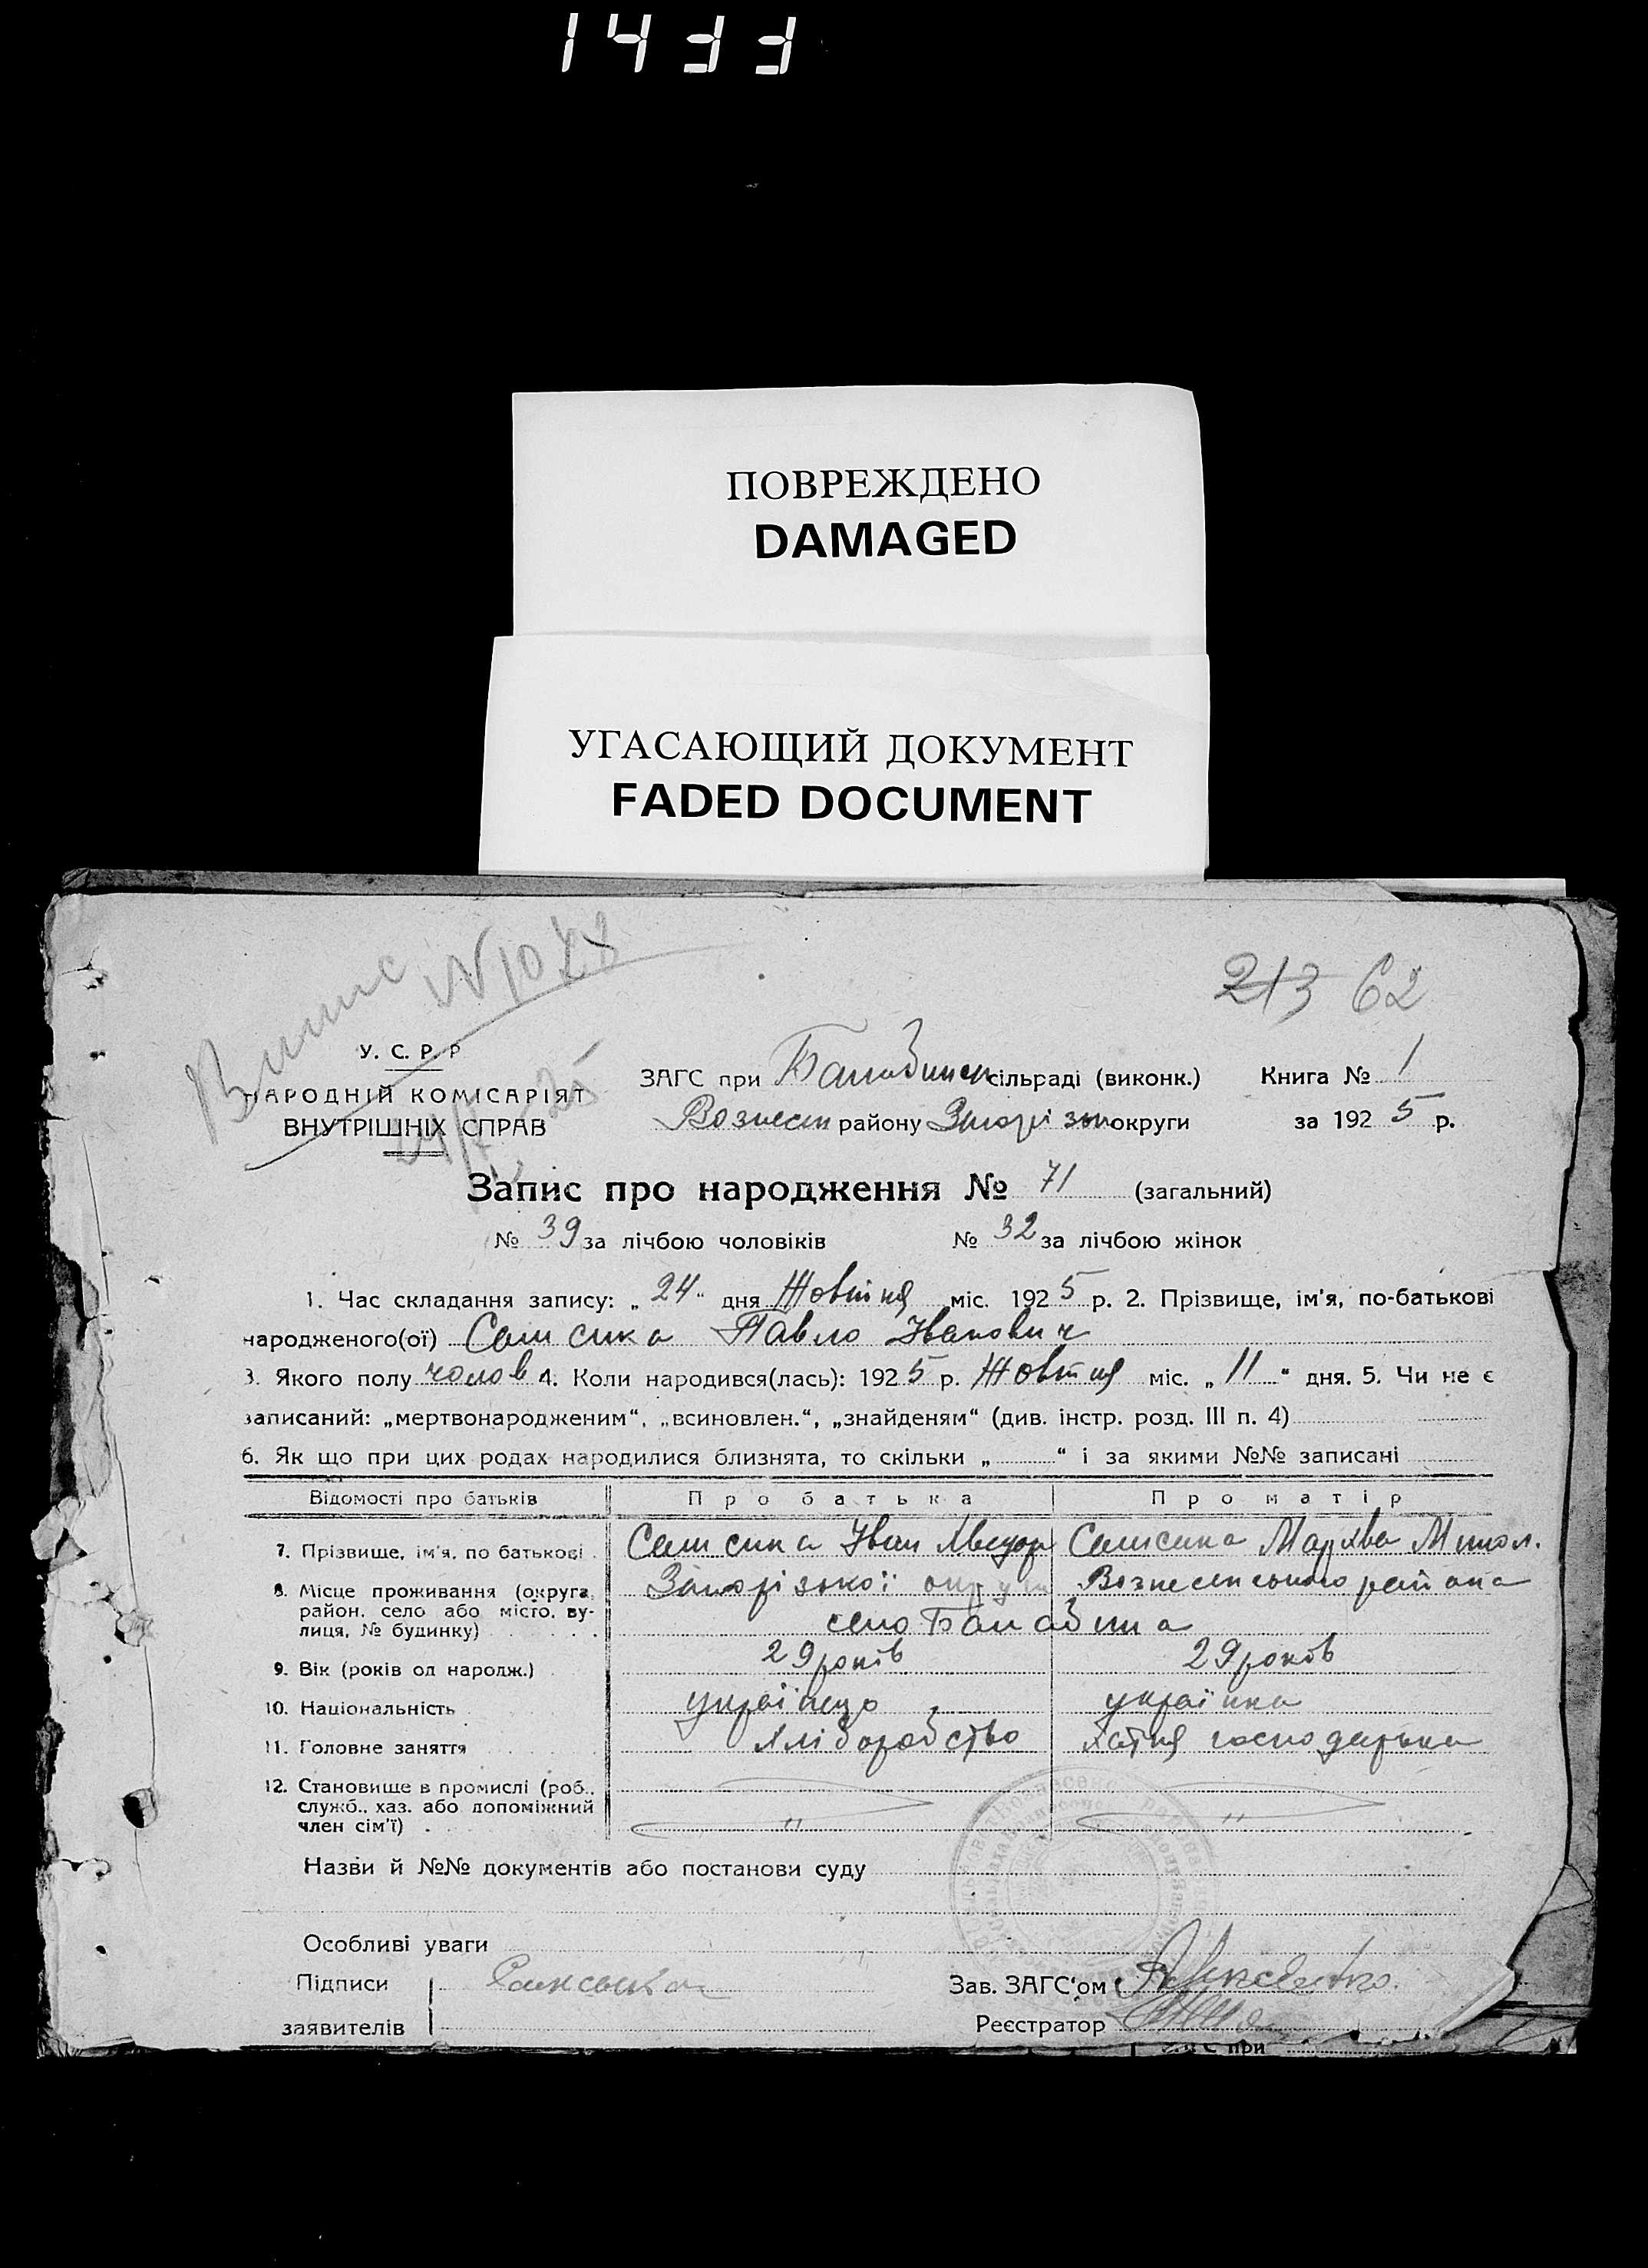 1433
ПОВРЕЖДЕНО
DAMAGED
УГАСАЮЩИЙ ДОКУМЕНТ
FADED DOCUMENT
Випис №
213 62
У. С. Р. Р
НАРОДНІЙ КОМІСАРІЯТ
ВНУТРІШНІХ СПРАВ
ЗАГС при сільраді (виконк.) Книга № 1
Вознесен району округи за 1925 р.
Запис про народження № 71 (загальний)
№ 39 за лічбою чоловіків № 32 за лічбою жінок
1. Час складання запису: „24" дня Жовтня міс. 1925 р. 2. Прізвище, ім'я, по-батькові
народженого(ої) Самсика Павло Іванович
3. Якого полу чолов 4. Коли народився(лась): 1925 р. Жовтня міс. „11" дня. 5. Чи не є
записаний: „мертвонародженим", „всиновлен.", „знайденям" (див. інстр. розд. III п. 4)
6. Як що при цих родах народилися близнята, то скільки „ " і за якими №№ записані
Відомості про батьків Про батька Про матір
7. Прізвище, ім'я, по батькові Самсика Іван Самсика Мархва Микол.
8. Місце проживання (округа, район, село або місто, вулиця, № будинку) Запорізької округи Вознесенського района
село Балабина
9. Вік (років од народж.) 29 років 29 років
10. Національність українець українка
11. Головне заняття хліборобство хатня господарька
12. Становище в промислі (роб., служб., хаз. або допоміжний член сім'ї) " "
Назви й №№ документів або постанови суду
Особливі уваги
Підписи
заявителів
Зав. ЗАГС'ом
Реєстратор